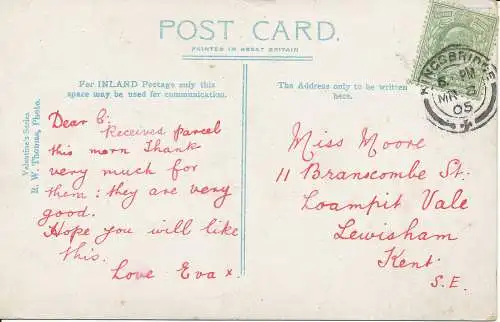 POST CARD.
PRINTED IN GREAT BRITAIN
For INLAND Postage only this
space may be used for communication.
The Address only to be written
here.
Valentine's Series
R. W. Thomas, Photo.
KINGSBRIDGE
PM
MR
05
Dear E:
Received parcel
this morn Thank
very much for
them: they are very
good.
Hope you will like
this.
Love Eva x.
Miss Moore
11 Branscombe St.
Loampit Vale
Lewisham
Kent.
S.E.